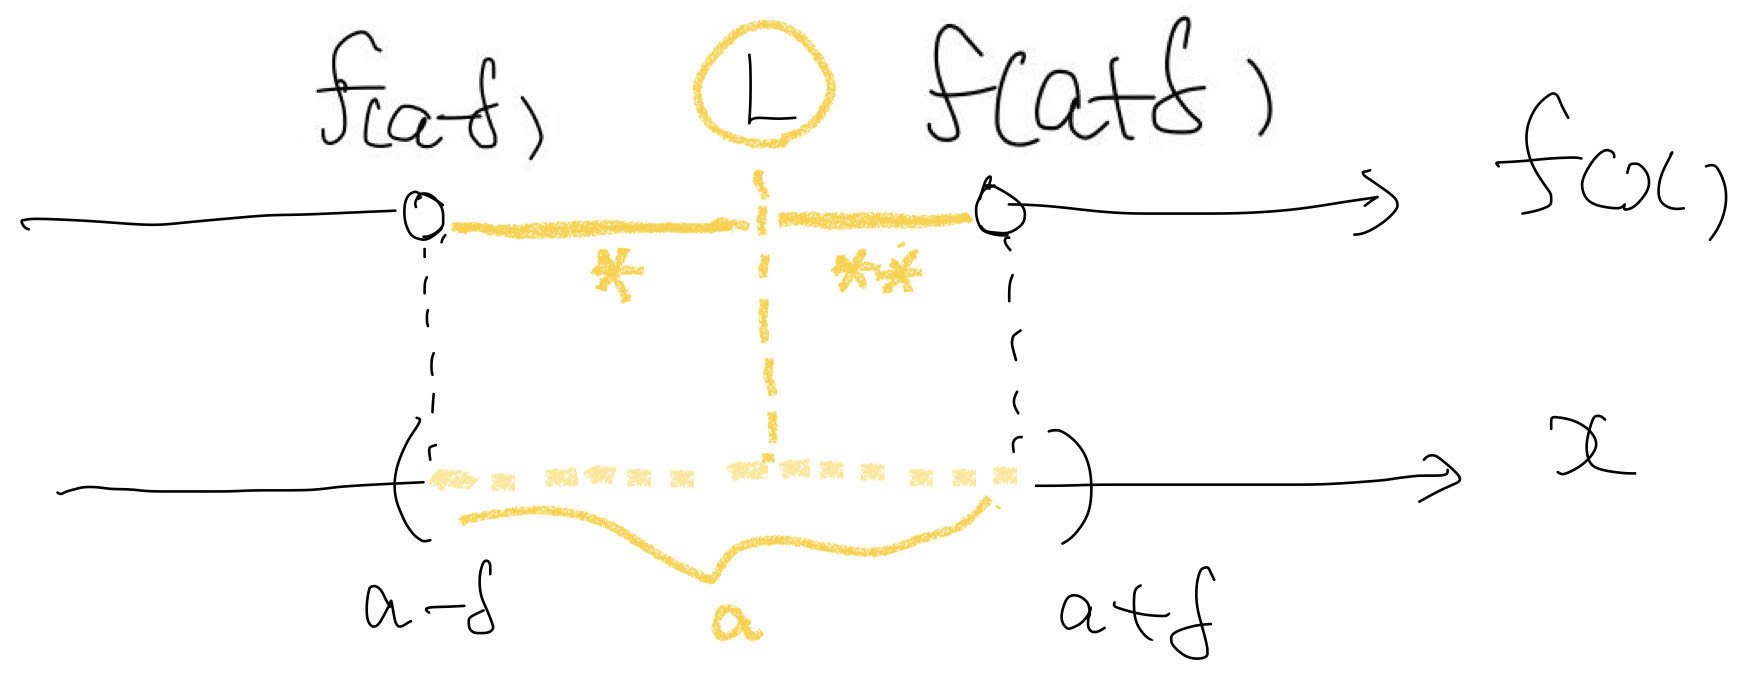 f(a-δ) L f(a+δ)
f(x)
* **
x
a-δ a a+δ